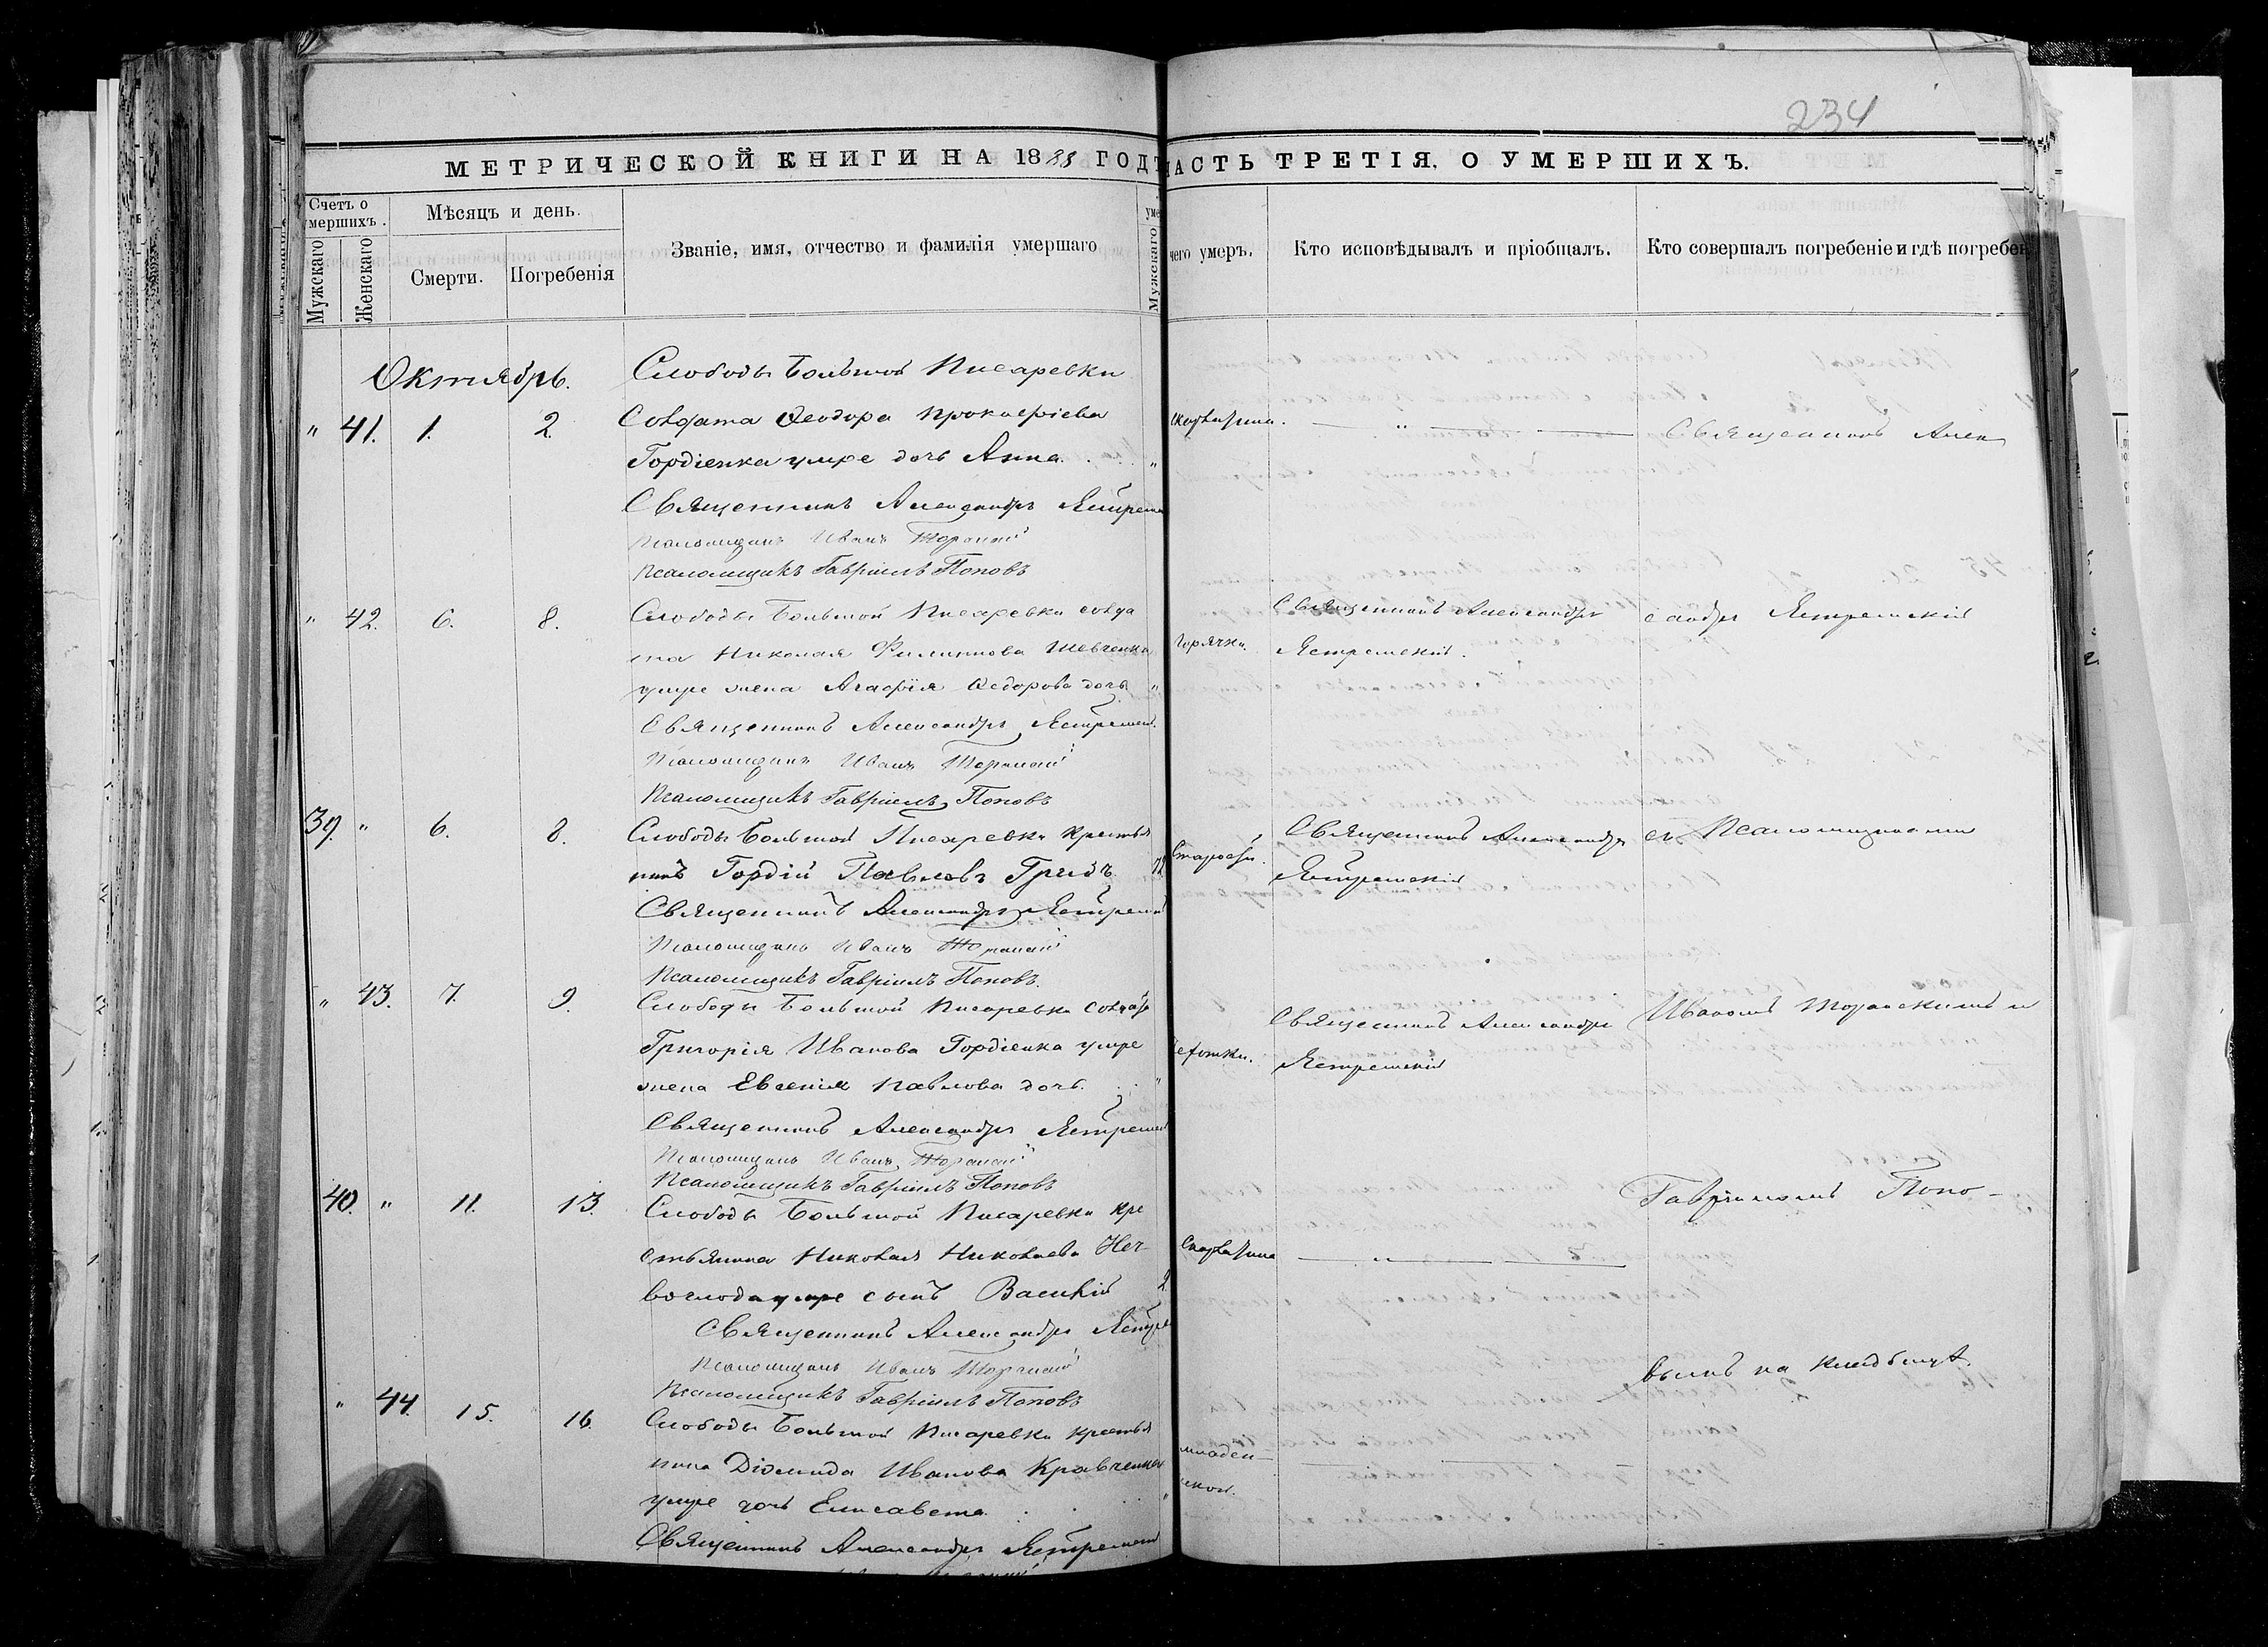 234
МЕТРИЧЕСКОЙ КНИГИ НА 1888 ГОД
АСТЬ ТРЕТІЯ, О УМЕРШИХЪ.
Счетъ о
мершихъ.
Мужскаго
Женскаго
Мѣсяцъ и день.
Смерти.
Погребенія
Званіе, имя, отчество и фамилія умершаго
уме
Мужскаго
чего умеръ.
Кто исповѣдывалъ и пріобщалъ.
Кто совершалъ погребеніе и гдѣ погребен
Октябрь.
Слободы Большой Писаревки
" 41. 1. 2. Солдата Ѳеодора Прокофіева
Гордіенка умре дочь Анна "
Священникъ Александръ Ястремс
Псаломщикъ Иванъ
Псаломщикъ Гавріилъ Поповъ
" 42. 6. 8. Слободы Большой Писаревки солда
та Николая Филиппова Шевченка
умре жена Агафія Ѳедорова дочь "
Священникъ Александръ Ястремск
Псаломщикъ Иванъ
Псаломщикъ Гавріилъ Поповъ
39. " 6. 8. Слободы Большой Писаревки крестья
нинъ Гордій Павловъ Гридъ 72
Священникъ Александръ Ястремск
Псаломщикъ Иванъ
Псаломщикъ Гавріилъ Поповъ.
" 43. 7. 9. Слободы Большой Писаревки солдата
Григорія Иванова Гордіенка умре
жена Евгенія Павлова дочь. "
Священникъ Александръ Ястремск
Псаломщикъ Иванъ
Псаломщикъ Гавріилъ Поповъ
40. " 11. 13. Слободы Большой Писаревки кре
стьянина Николая Николаева Неч
воглода умре сынъ Василій 2
Священникъ Александръ Ястре
Псаломщикъ Иванъ
Псаломщикъ Гавріилъ Поповъ
" 44. 15. 16. Слободы Большой Писаревки крестья
нина Діомида Иванова Кравченка
умре дочь Елисавета "
Священникъ Александръ Ястремск
скарлатина. — " — —
горячки.
Священникъ Александръ
Ястремскій.
старости.
Священникъ Александръ
Ястремскій
чахотки.
Священникъ Александръ
Ястремскій
скарлатина — " —
младен-
ской.
Священникъ Алек
сандръ Ястремскій
съ Псаломщиками
Иваномъ и
Гавріиломъ Попо-
вымъ на кладбищѣ.